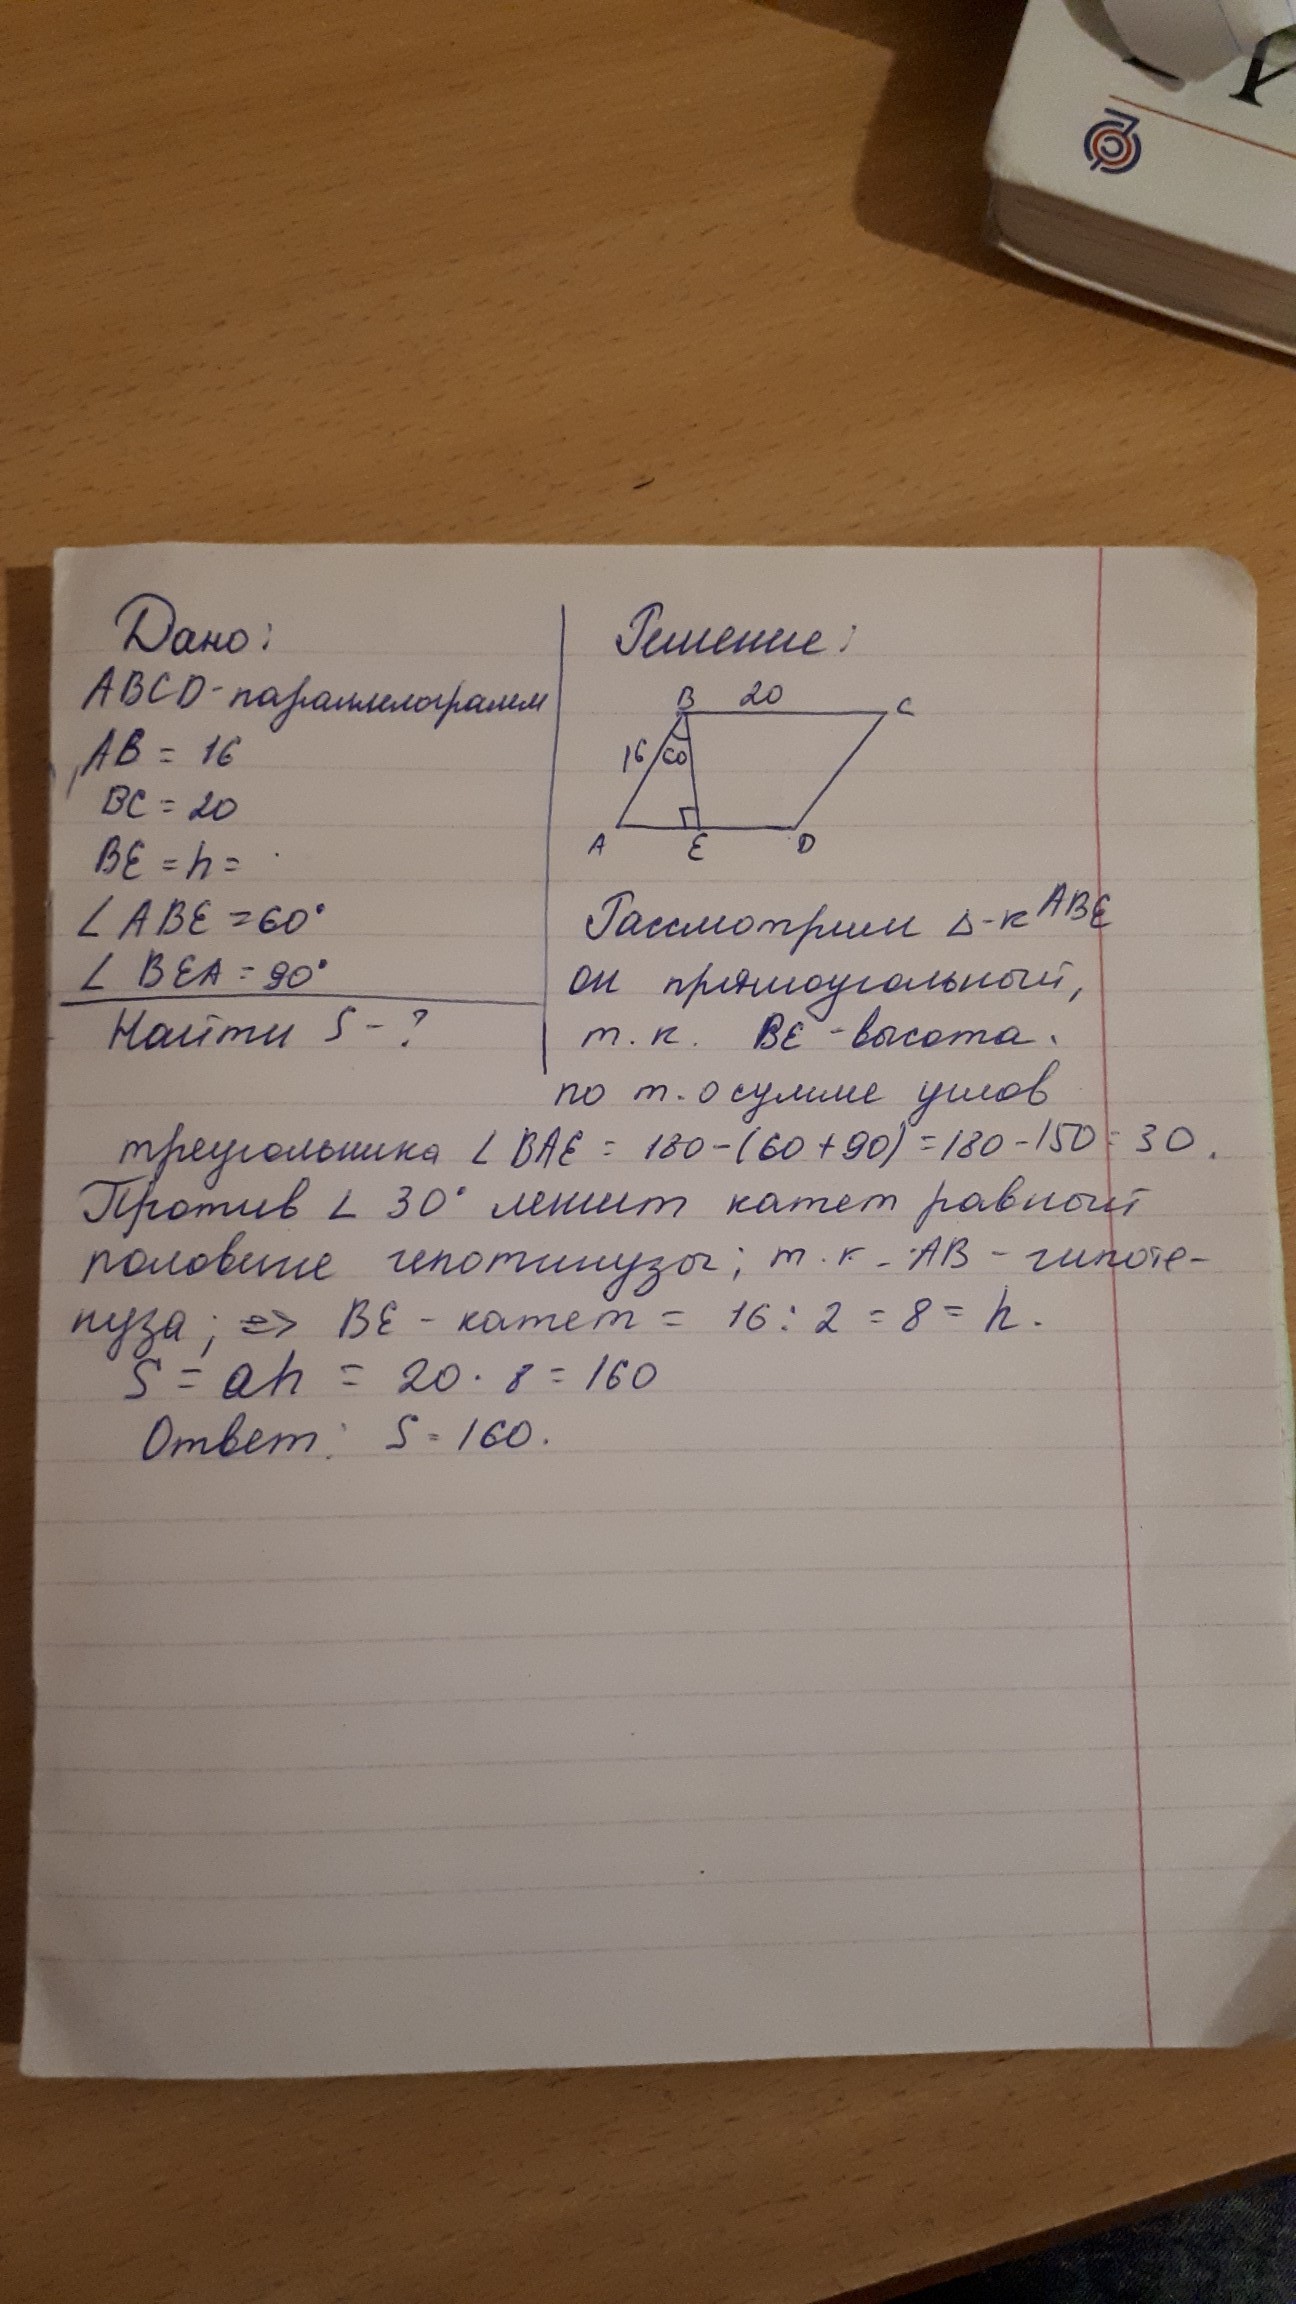 И
Дано:
ABCD-параллелограмм
AB = 16
BC = 20
BE = h =
∠ ABE = 60°
∠ BEA = 90°
Найти S - ?
Решение:
B 20 C
16 60
A E D
Рассмотрим Δ-к ABE
он прямоугольный,
т.к. BE - высота.
по т. о сумме углов
треугольника ∠ BAE = 180-(60+90)=180-150=30.
Против ∠ 30° лежит катет равный
половине гепотинузы; т.к. AB - гипоте-
нуза; => BE - катет = 16:2 = 8 = h.
S = ah = 20 · 8 = 160
Ответ: S = 160.